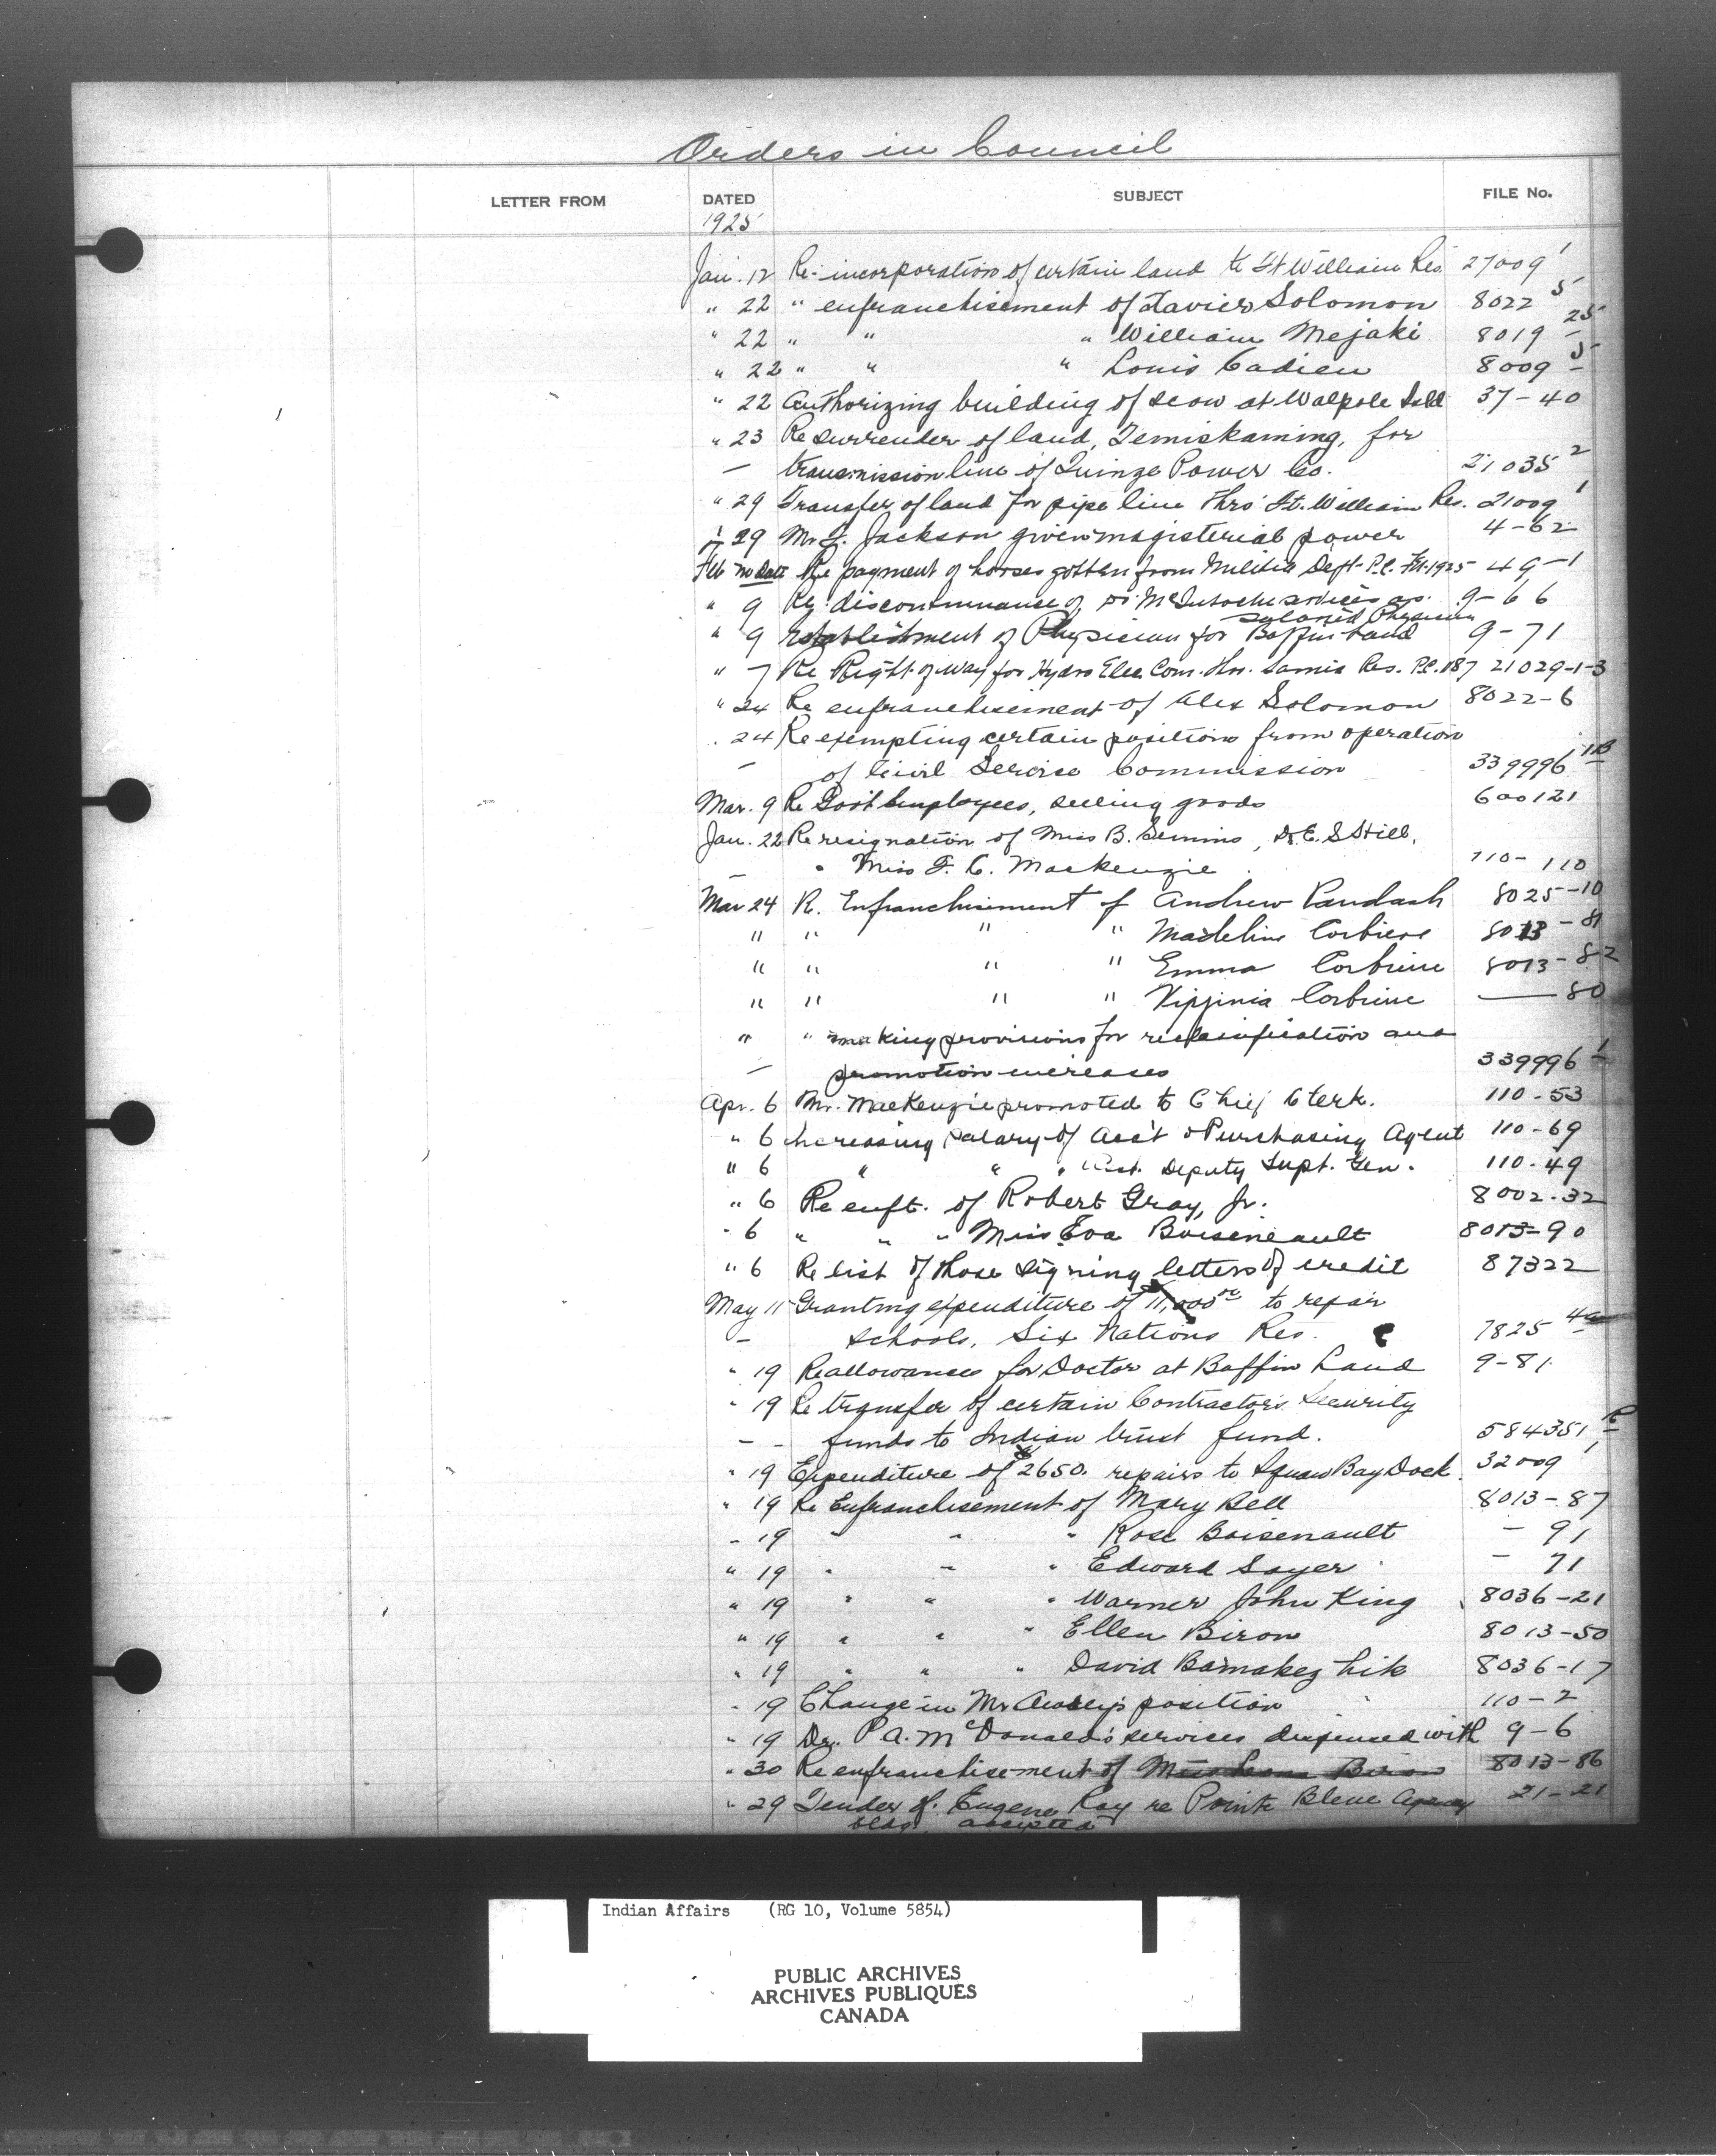 Orders in Council
LETTER FROM DATED SUBJECT FILE No.
1925
Jan. 12 Re-incorporation of certain land to Ft William Res. 27009 1
" 22 " enfranchisement of Xavier Solomon 8022 5
" 22 " " " William Mejaki 8019 25
" 22 " " " Louis Cadieu 8009 5
" 22 Authorizing building of scow at Walpole Isld 37-40
" 23 Re surrender of land, Temiskaming, for
— transmission line of Quinze Power Co. 21035 2
" 29 Transfer of land for pipe line thro' Ft. William Res. 21009 1
" 29 Mr. J. Jackson given magisterial power 4-62
Feb no date Re payment of horses gotten from Militia Dept. P.C. Feb. 1925 49-1
" 9 Re discontinuance of Dr. McIntosh services as 9-66
salaried Physician
" 9 establishment of Physician for Baffin Land 9-71
" 7 Re Right of Way for Hydro Elec. Com. thro. Sarnia Res. P.C. 187 21029-1-3
" 24 Re enfranchisement of Alex Solomon 8022-6
. 24 Re exempting certain positions from operation
— of Civil Service Commission 339996
Mar. 9 Re Govt Employees, selling goods 600121
Jan. 22 Re resignation of Miss B. , Dr. E. S Still,
" Miss F. C. Mackenzie 110-110
Mar 24 R. Enfranchisement of Andrew 8025-10
" " " " Madeline Corbiere 8013-81
" " " " Emma Corbiere 8013-82
" " " " Virginia Corbiere — 80
" " making provisions for reclassification and
— promotion increases 339996 1
Apr. 6 Mr. MacKenzie promoted to Chief Clerk. 110-53
" 6 Increasing salary of Acc't & Purchasing Agent 110-69
" 6 " " " Asst. Deputy Supt. Gen. 110-49
" 6 Re enft. of Robert Gray, Jr. 8002-32
" 6 " " " Miss Eva Boiseneault 8013-90
" 6 Re list of those signing letters of credit 87322
May 11 Granting expenditure of 11,000 00 to repair
— schools, Six Nations Res. 7825
" 19 Re allowances for Doctor at Baffin Land 9-81
" 19 Re transfer of certain Contractor's Security
— - funds to Indian trust fund. 584351
" 19 Expenditure of $2650. repairs to Squaw Bay Dock. 32009 1
" 19 Re Enfranchisement of Mary Bell 8013-87
" 19 " " " Rose Boisenault — 91
" 19 " " " Edward Sayer — 71
" 19 " " " Warner John King 8036-21
" 19 " " " Ellen Biron 8013-50
" 19 " " " David 8036-17
" 19 Change in Mr position 110-2
" 19 Dr. P. A. McDonald's services dispensed with 9-6
" 30 Re enfranchisement of Biron 8013-86
" 29 Tender of Eugene Roy re Pointe Bleue Agency 21-21
bldg. accepted
Indian Affairs (RG 10, Volume 5854)
PUBLIC ARCHIVES
ARCHIVES PUBLIQUES
CANADA